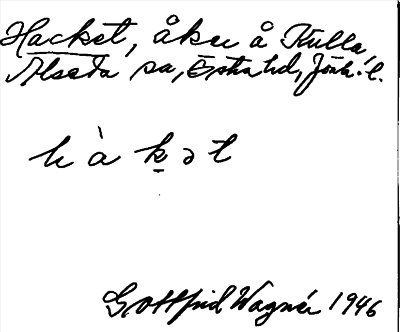 Hacket, åker å Kulla,
Alseda sn, Östra hd, Jönk. l.
hàk̠ət
Gottfrid Wagnér 1946